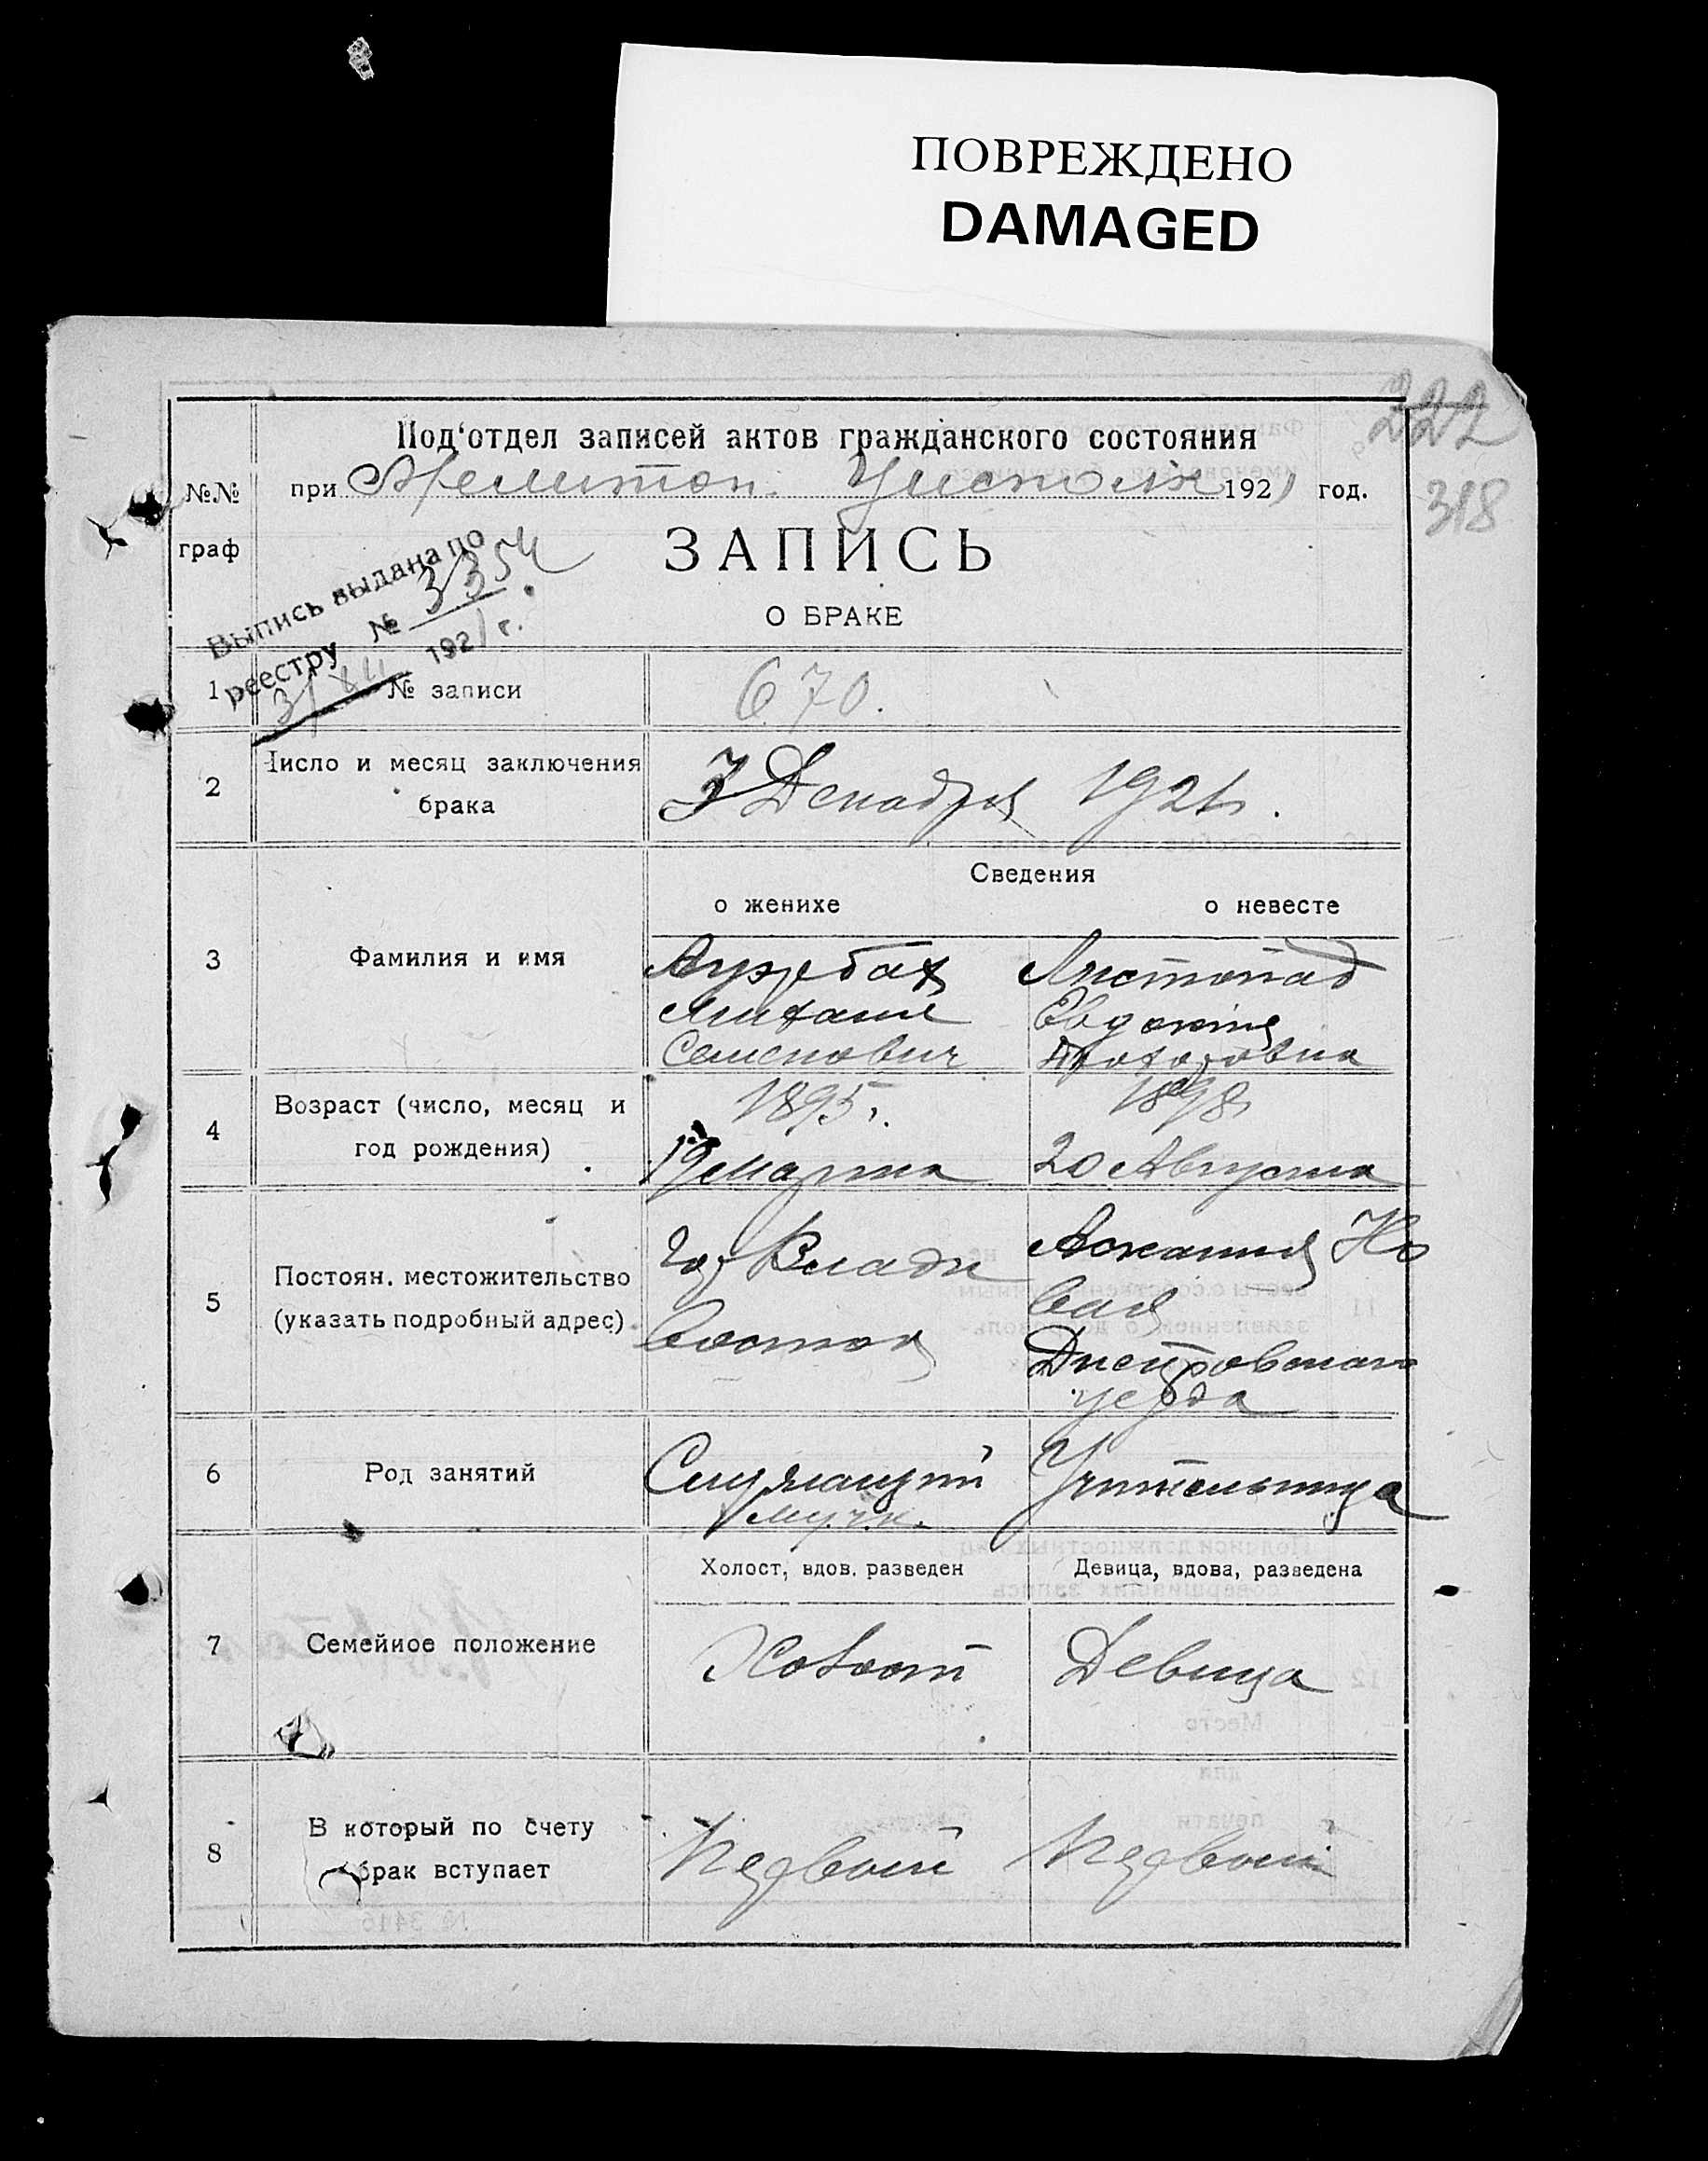 ПОВРЕЖДЕНО
DAMAGED
222
318
Под'отдел записей актов гражданского состояния
№№ граф
при Мелитоп. Уисполк 1921 год.
ЗАПИСЬ
О БРАКЕ
Выпись выдана по
реестру № 3354
31 XII 1921 г.
1 № записи 670.
2 Число и месяц заключения брака
3 Декабря 1921 г.
Сведения
о женихе о невесте
3 Фамилия и имя
Михаил
Семенович
Листопад
Евдокия
Прохоровна
4 Возраст (число, месяц и год рождения)
1895 г.
19 Марта
1898
20 Августа
5 Постоян. местожительство (указать подробный адрес)
гор Влади
восток
Аскания Но
вая
Днепровского
уезда
6 Род занятий
Служащий
Учительница
7 Семейное положение
Холост, вдов, разведен
Девица, вдова, разведена
Холост
Девица
8 В который по счету брак вступает
Первый
Первый